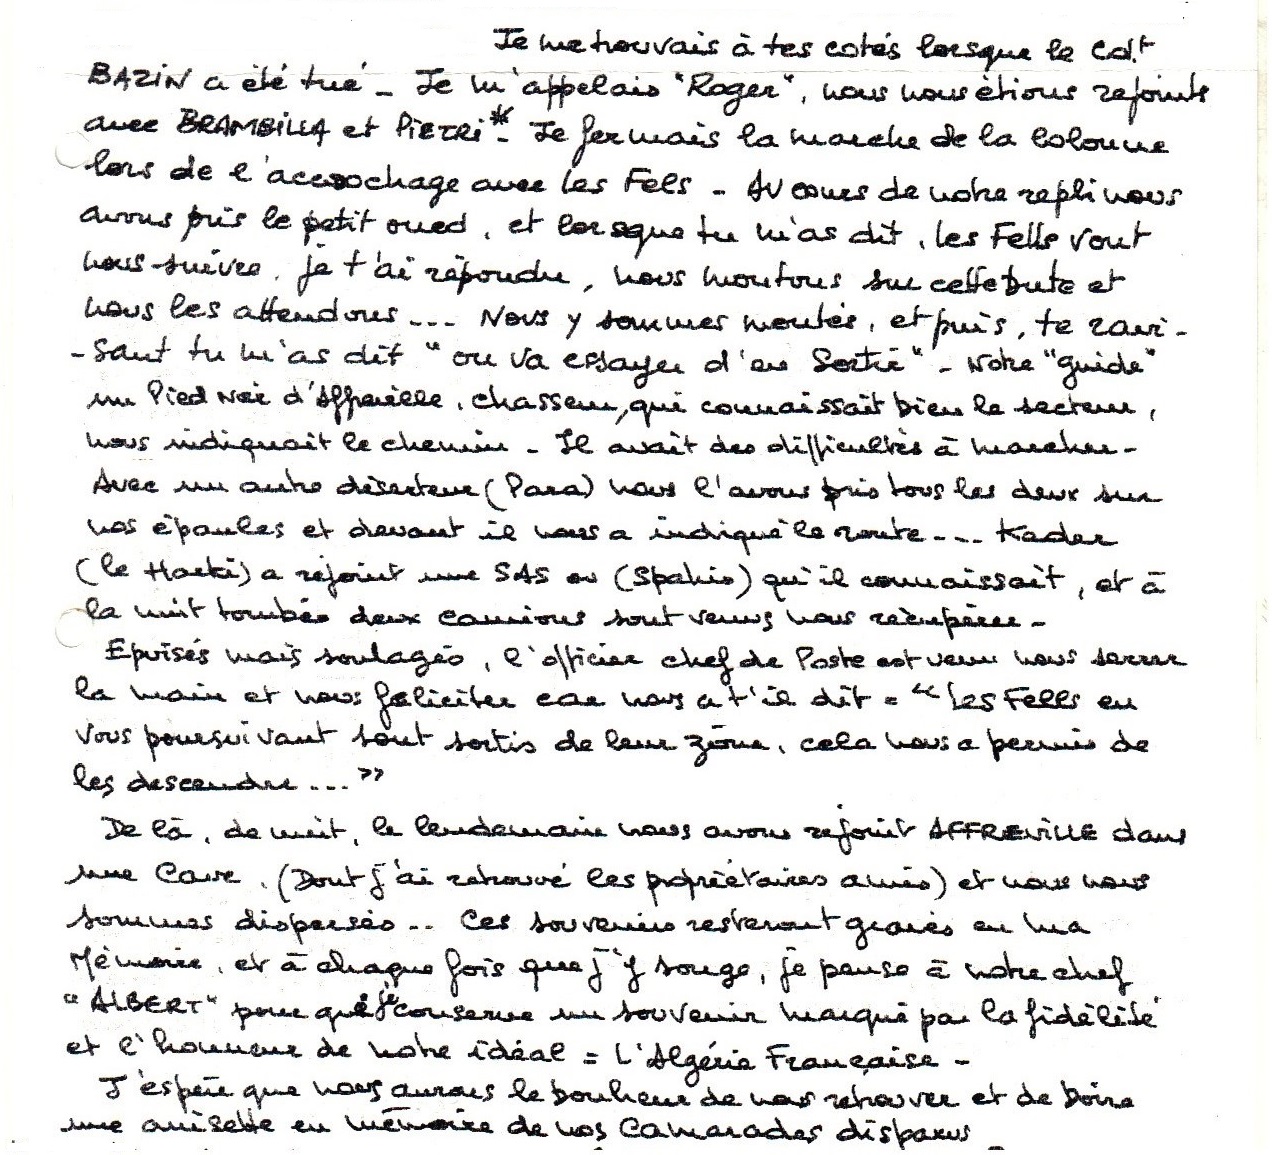 Je me trouvais à tes cotés lorsque le Cdt
BAZIN a été tué - Je m'appelais "Roger", nous nous étions rejoints
avec BRAMBILLA et PIETRI*- Je fermais la marche de la colonne
lors de l'accrochage avec les Fels - Au cours de notre repli nous
avons pris le petit oued, et lorsque tu m'as dit, les Fells vont
nous suivre, je t'ai répondu, nous montons sur cette bute et
nous les attendons --- Nous y sommes montés, et puis, te ravi-
-sant tu m'as dit "on va essayer d'en sortir" - Notre "guide"
un Pied Noir d'Affreville, chasseur, qui connaissait bien le secteur,
nous indiquait le chemin - Il avait des difficultés à marcher -
Avec un autre déserteur (Para) nous l'avons pris tous les deux sur
nos épaules et devant il nous a indiqué la route --- Kader
(le Harki) a rejoint une SAS ou (Spahis) qu'il connaissait, et à
la nuit tombée deux camions sont venus nous récupérer -
Epuisés mais soulagés, l'officier chef de Poste est venu nous serrer
la main et nous féliciter car nous a t'il dit = "Les Fells en
vous poursuivant sont sortis de leur zone, cela nous a permis de
les descendre ..."
De là, de nuit, le lendemain nous avons rejoint AFFREVILLE dans
une Cave, (Dont j'ai retrouvé les propriétaires amis) et nous nous
sommes dispersés .. Ces souvenirs resteront gravés en ma
Mémoire, et à chaque fois que j'y songe, je pense à notre chef
"ALBERT" pour qui je conserve un souvenir marqué par la fidélité
et l'honneur de notre idéal = L'Algérie Française -
J'espère que nous aurons le bonheur de nous retrouver et de boire
une anisette en mémoire de nos Camarades disparus